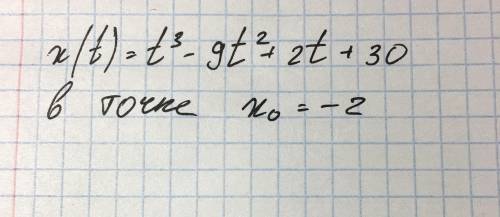 x(t) = t³ - 9t² + 2t + 30
в точке x₀ = -2